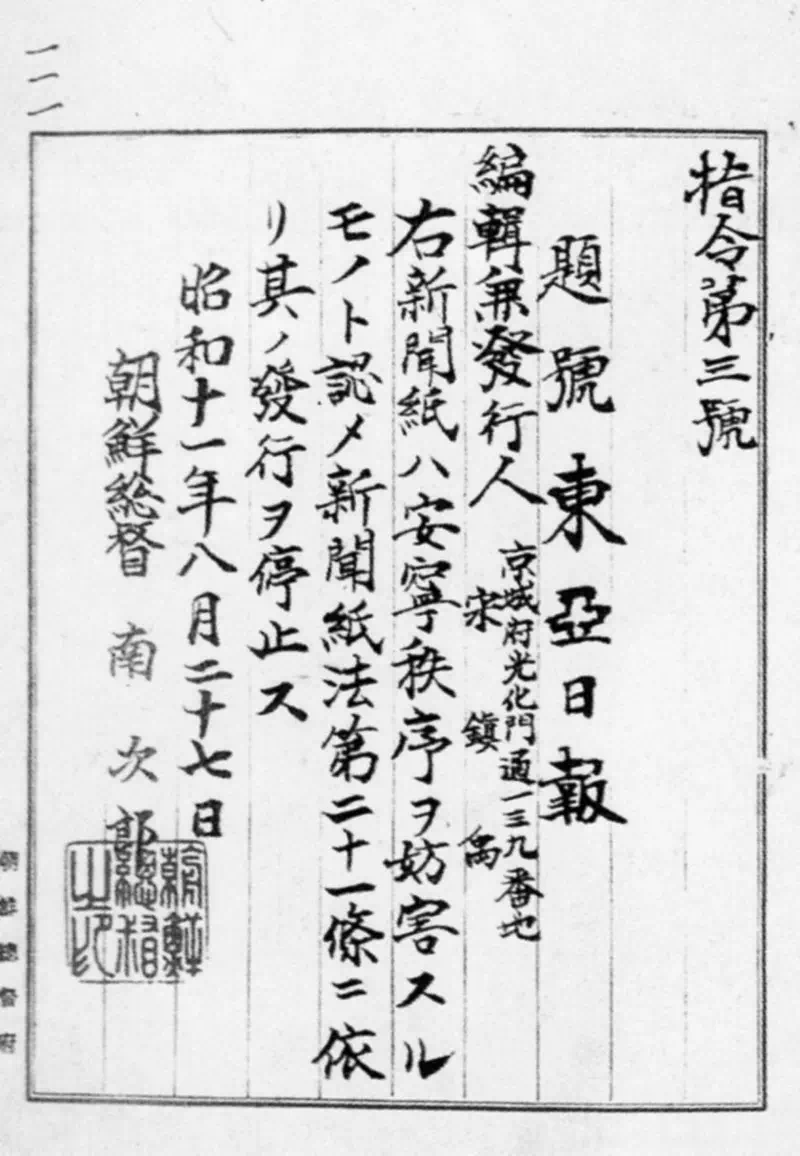 一一一
指令第三號
題號東亞日報
編輯兼發行人
京城府光化門通一三九番地
宋鎭禹
右新聞紙ハ安寧秩序ヲ妨害スル
モノト認メ新聞紙法第二十一條ニ依
リ其ノ發行ヲ停止ス
昭和十一年八月二十七日
朝鮮総督 南次郎
朝鮮總督之印
朝鮮總督府